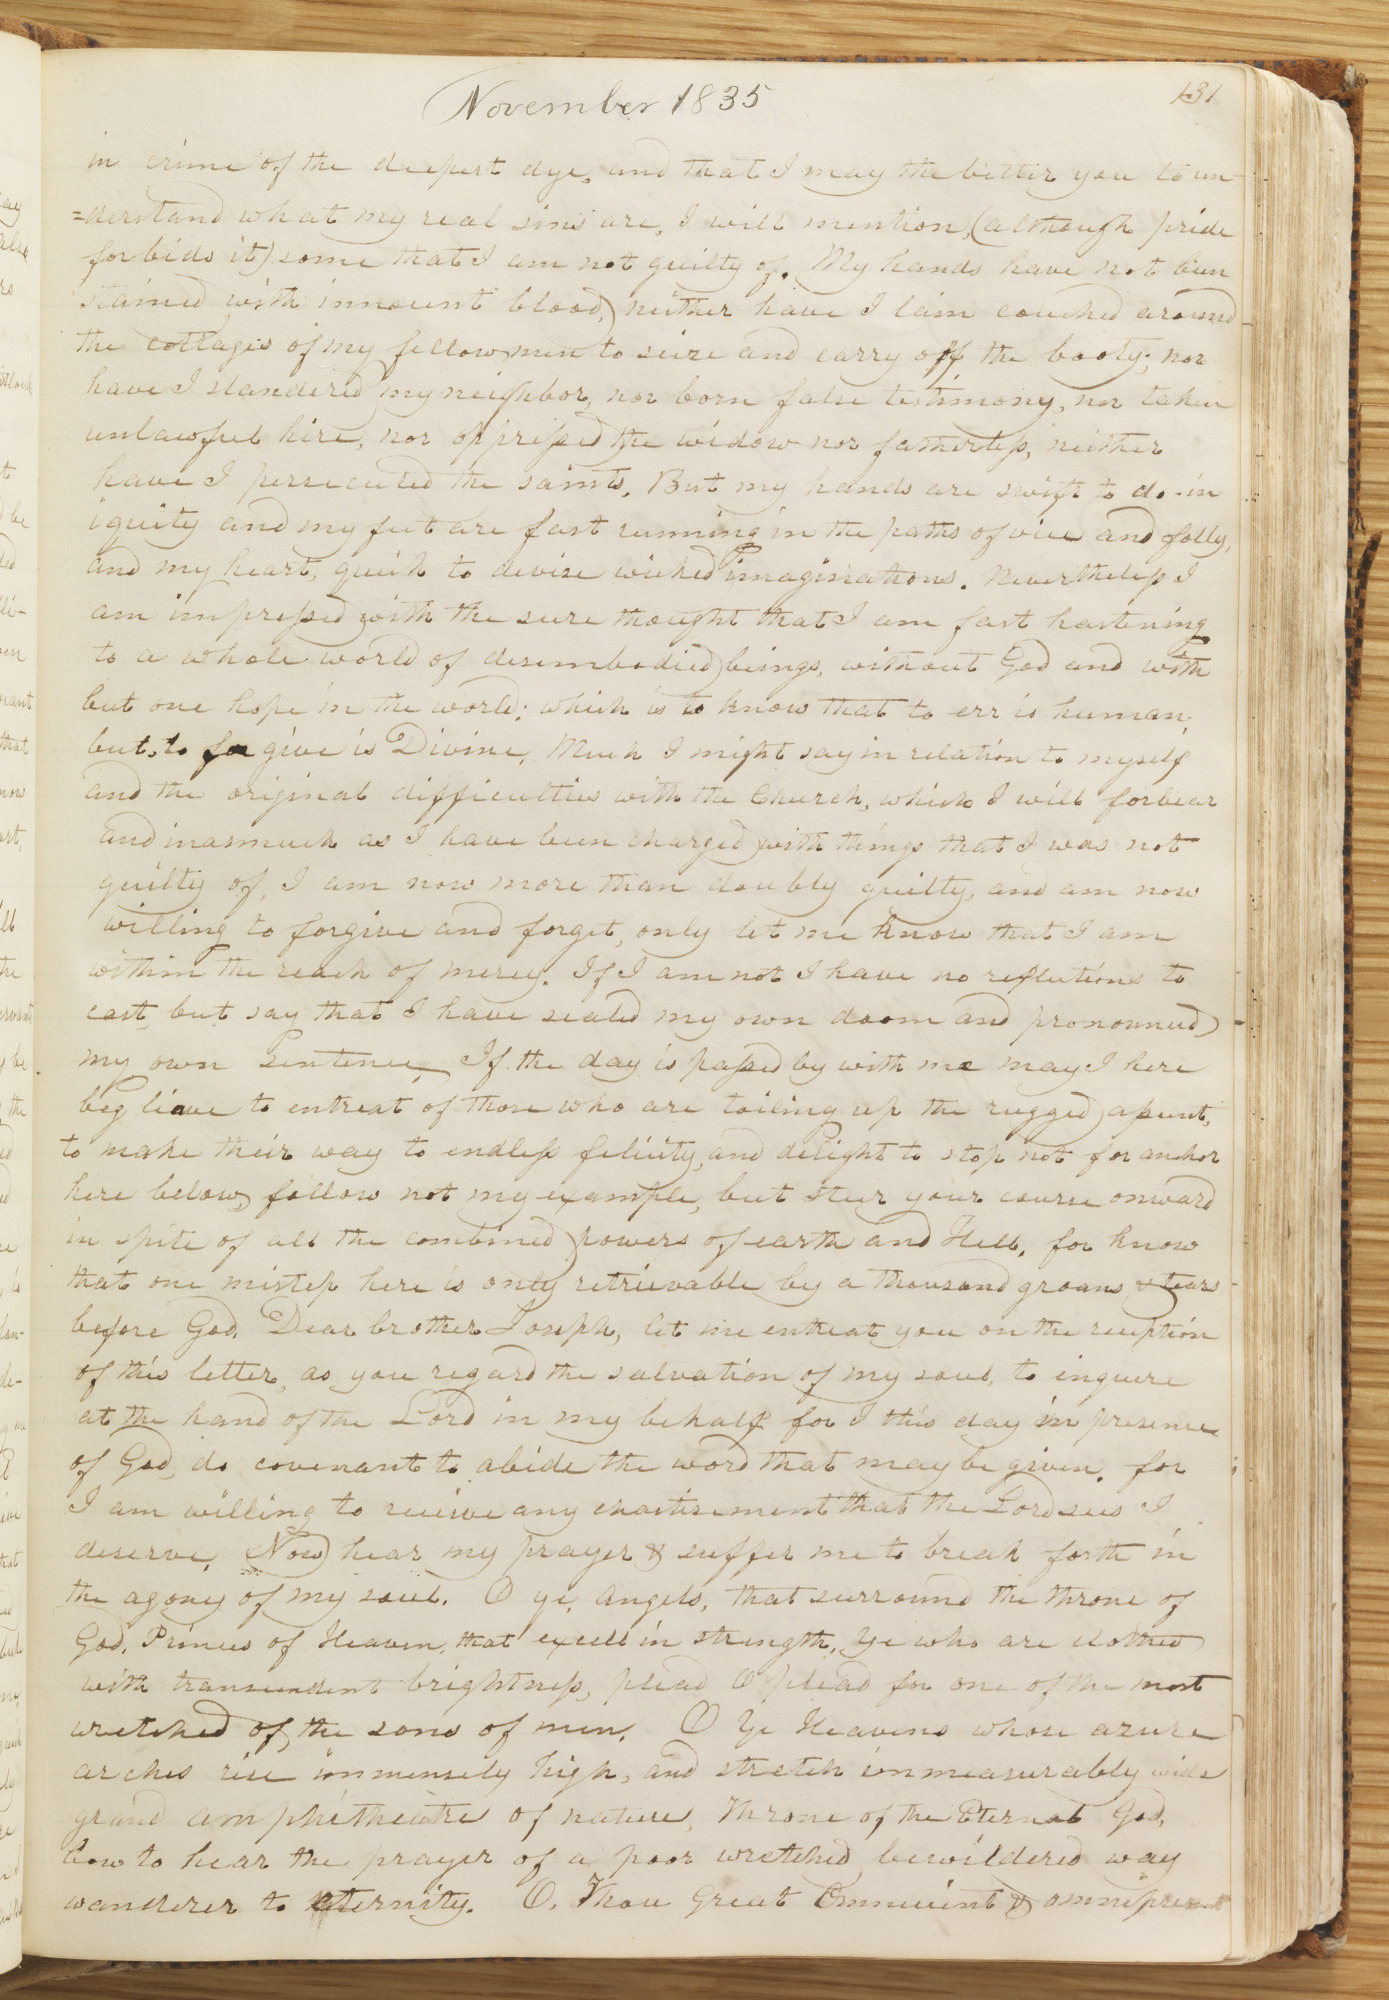 November 1835
131
in crime of the deepest dye. and that I may the better you to un-
=derstand what my real sins are, I will mention, (although pride
forbids it) some that I am not guilty of. My hands have not been
stained with innocent blood, neither have I lain couched around
the cottages of my fellow men to seize and carry off the booty; nor
have I slandered my neighbor, nor born false testimony, nor taken
unlawful hire, nor oppressed the widow nor fatherless, neither
have I persecuted the saints. But my hands are swift to do in
iquity and my feet are fast running in the paths of vice and folly,
and my heart, quick to devise wicked imaginations. Nevertheless I
am impressed with the sure thought that I am fast hastening
to a whole world of desembodied beings, without God and with
but one hope in the world; which is to know that to err is human,
but, to forgive is Divine, Much I might say in relation to myself
and the original difficulties with the Church, which I will forbear
and inasmuch as I have been charged with things that I was not
guilty of, I am now more than doubly guilty, and am now
willing to forgive and forget, only let me know that I am
within the reach of mercy. If I am not I have no reflections to
cast, but say that I have sealed my own doom and pronounced
my own sentence If the day is passed by with me may I here
beg lieave to entreat of those who are toiling up the rugged assent,
to make their way to endless felicity, and delight to stop not for anchor
here below, follow not my example, but steer your course onward
in spite of all the combined powers of earth and Hell, for know
that one mistep here is only retrievable by a thousand groans & tears
before God. Dear brother Joseph, let me entreat you on the reception
of this letter, as you regard the salvation of my soul, to enquire
at the hand of the Lord in my behalf for I this day in presence
of God, do covenant to abide the word that may be given. for
I am willing to receive any chastisement that the Lord sees I
deserve. Now hear my prayer & suffer me to break forth in
the agony of my soul. O ye, Angels, that surround the throne of
God, Princes of Heaven, that excell in strength, ye who are clothed
with transcendent brightness, plead O plead for one of the most
wretched of the sons of men. O Ye Heavens whose azure
arches rise immensely high, and stretch immeasurably wide
grand amphitheatre of nature, throne of the Eternal God,
bow to hear the prayer of a poor wretched bewildered way
wanderer to eternity. O, Thou Great Omnicient & omnipresent